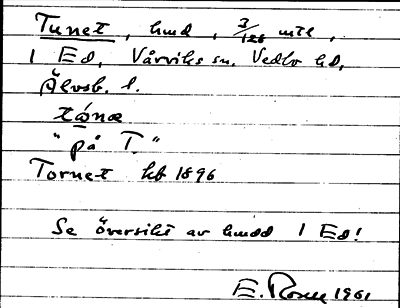 Tunet, hmd, 3/128 mtl,
1 Ed, Vårviks sn. Vedbo hd,
Älvsb. l.
tǿnæ
"på T."
Tornet kb 1896
Se översikt av hmdd 1 Ed!
E. Rosell 1961